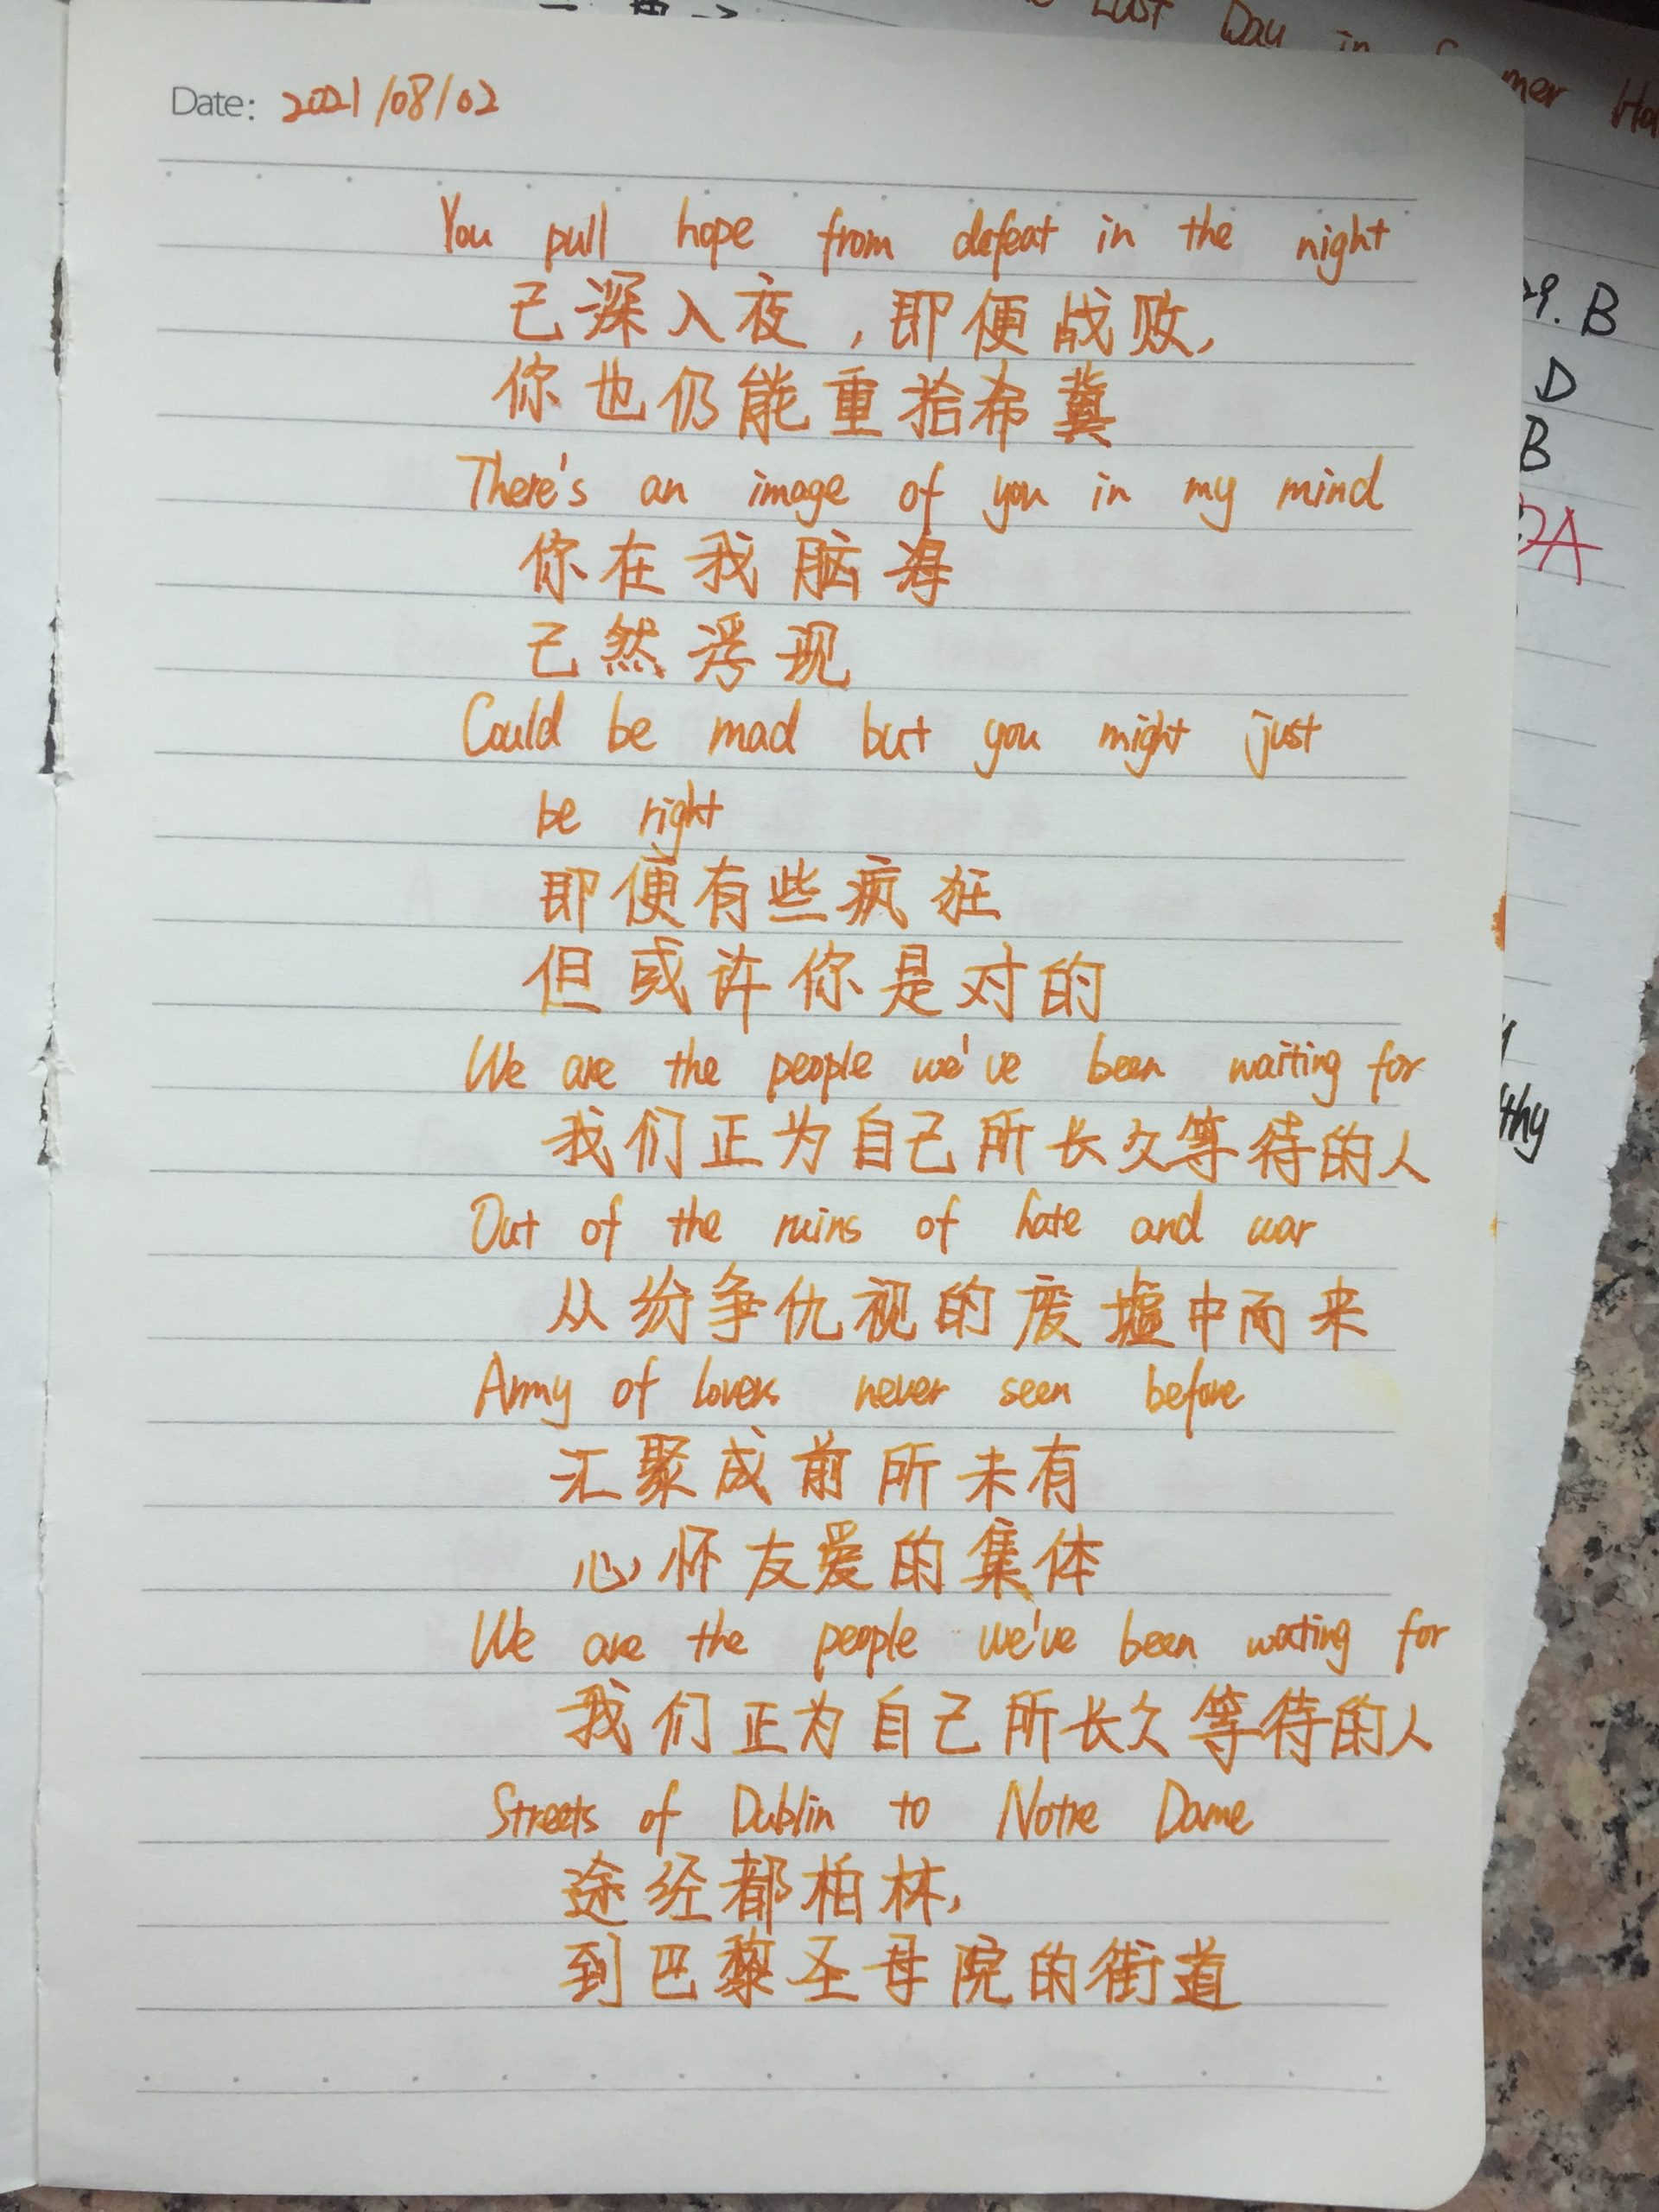 二 再
Last Day in
mer Ho
Date: 2021/08/02
You pull hope from defeat in the night
已深入夜,即便战败,
你也仍能重拾希冀
There's an image of you in my mind
你在我脑海
已然浮现
Could be mad but you might just
be right
即便有些疯狂
但或许你是对的
We are the people we've been waiting for
我们正为自己所长久等待的人
Out of the ruins of hate and war
从纷争仇视的废墟中而来
Army of lovers never seen before
汇聚成前所未有
心怀友爱的集体
We are the people we've been waiting for
我们正为自己所长久等待的人
Streets of Dublin to Notre Dame
途经都柏林,
到巴黎圣母院的街道
29. B
D
B
A
thy